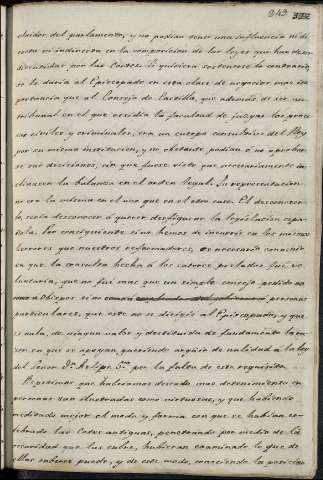 249
cluidos del parlamento, y no podian tener una influencia ni di-
recta ni indirecta en la composicion de las leyes que han de ser
discutidas, por las Cortes. Si quisiera sostenerse lo contrario
se le daria al Episcopado en esta clase de negocios mas im
portancia que al Consejo de Castilla, que además de ser un
tribunal en el que residia la facultad de juzgar los proce
sos civiles y criminales, era un cuerpo consultivo del Rey
por su misma institucion, y no obstante podian ó no aprobar
se sus decisiones, sin que fuese visto que necesariamente in
clinasen la balanza en el orden legal. Su representacion
no era la misma en el uno que en el otro caso. El desconocer
lo seria desconocer ó querer desfigurar la legislacion espa
ñola. Por consiguiente si no hemos de incurrir en los mismos
herrores que nuestros reformadores, es necesario convenir
en que la consulta hecha á los catorce prelados fué vo
luntaria, que no fué mas que un simple consejo pedido no
á Obispos si no á personas
particulares, que este no se dirigió al Episcopado, y que
es nula, de ningun valor y destituida de fundamento la ra
zon en que se apoyan queriendo argüir de nulidad á la ley
del Señor Dn. Felipe 5º por la falta de este requisito.
Es de estimar que hubieramos deseado mas detenimiento en
personas tan ilustradas como virtuosas, y que habiendo
meditado mejor el modo y forma con que se habian ce-
lebrado las Cortes antiguas, penetrando por medio de la
oscuridad que las cubre, hubieran examinado lo que de
ellas saberse puede, y de este modo, conociendo la posicion